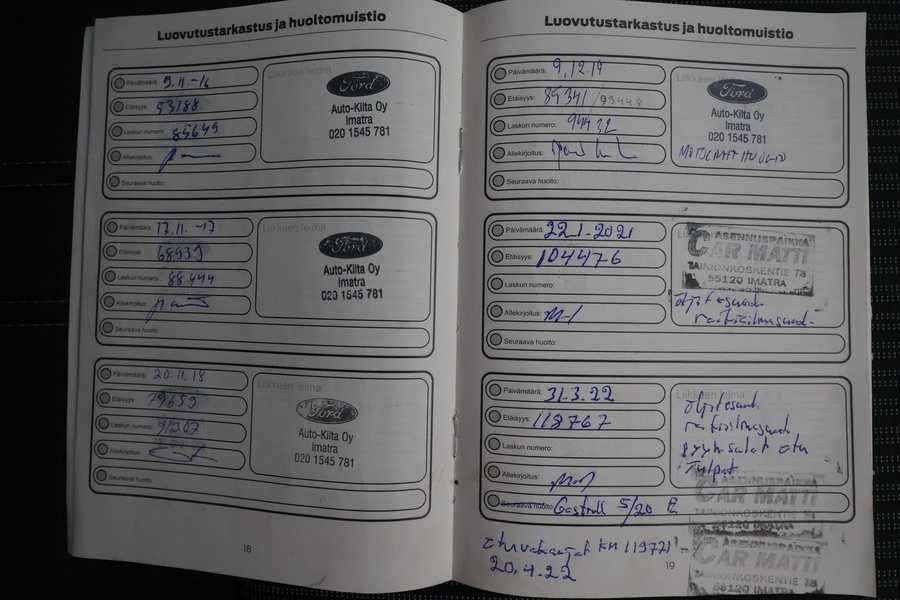 Luovutustarkastus ja huoltomuistio
Päivämäärä: 9.11.-16
Etäisyys: 53188
Laskun numero: 85649
Allekirjoitus:
Seuraava huolto:
Liikkeen leima
Ford
Auto-Kilta Oy
Imatra
020 1545 781
Päivämäärä: 17.11.-17
Etäisyys: 68939
Laskun numero: 88444
Allekirjoitus:
Seuraava huolto:
Liikkeen leima
Ford
Auto-Kilta Oy
Imatra
020 1545 781
Päivämäärä: 20.11.18
Etäisyys: 79659
Laskun numero: 91307
Allekirjoitus:
Seuraava huolto:
Liikkeen leima
Ford
Auto-Kilta Oy
Imatra
020 1545 781
18
Luovutustarkastus ja huoltomuistio
Päivämäärä: 9.12.19
Etäisyys: 89341 / 93448
Laskun numero: 94432
Allekirjoitus:
Seuraava huolto:
Liikkeen
Ford
Auto-Kilta Oy
Imatra
020 1545 781
Päivämäärä: 22.1.2021
Etäisyys: 104476
Laskun numero:
Allekirjoitus:
Seuraava huolto:
ASENNUSPAIKKA
CAR MATTI
TAINIONKOSKENTIE 78
55120 IMATRA
raitisilmasuod.
Päivämäärä: 31.3.22
Etäisyys: 118767
Laskun numero:
Allekirjoitus:
Seuraava huolto: Castroll 5/20
Liikkeen leima
raitisilmasuod
Tulpat
ASENNUSPAIKKA
CAR MATTI
TAINIONKOSKENTIE 78
55120 IMATRA
km 119771
20.4.22
19
ASENNUSPAIKKA
CAR MATTI
TAINIONKOSKENTIE 78
55120 IMATRA